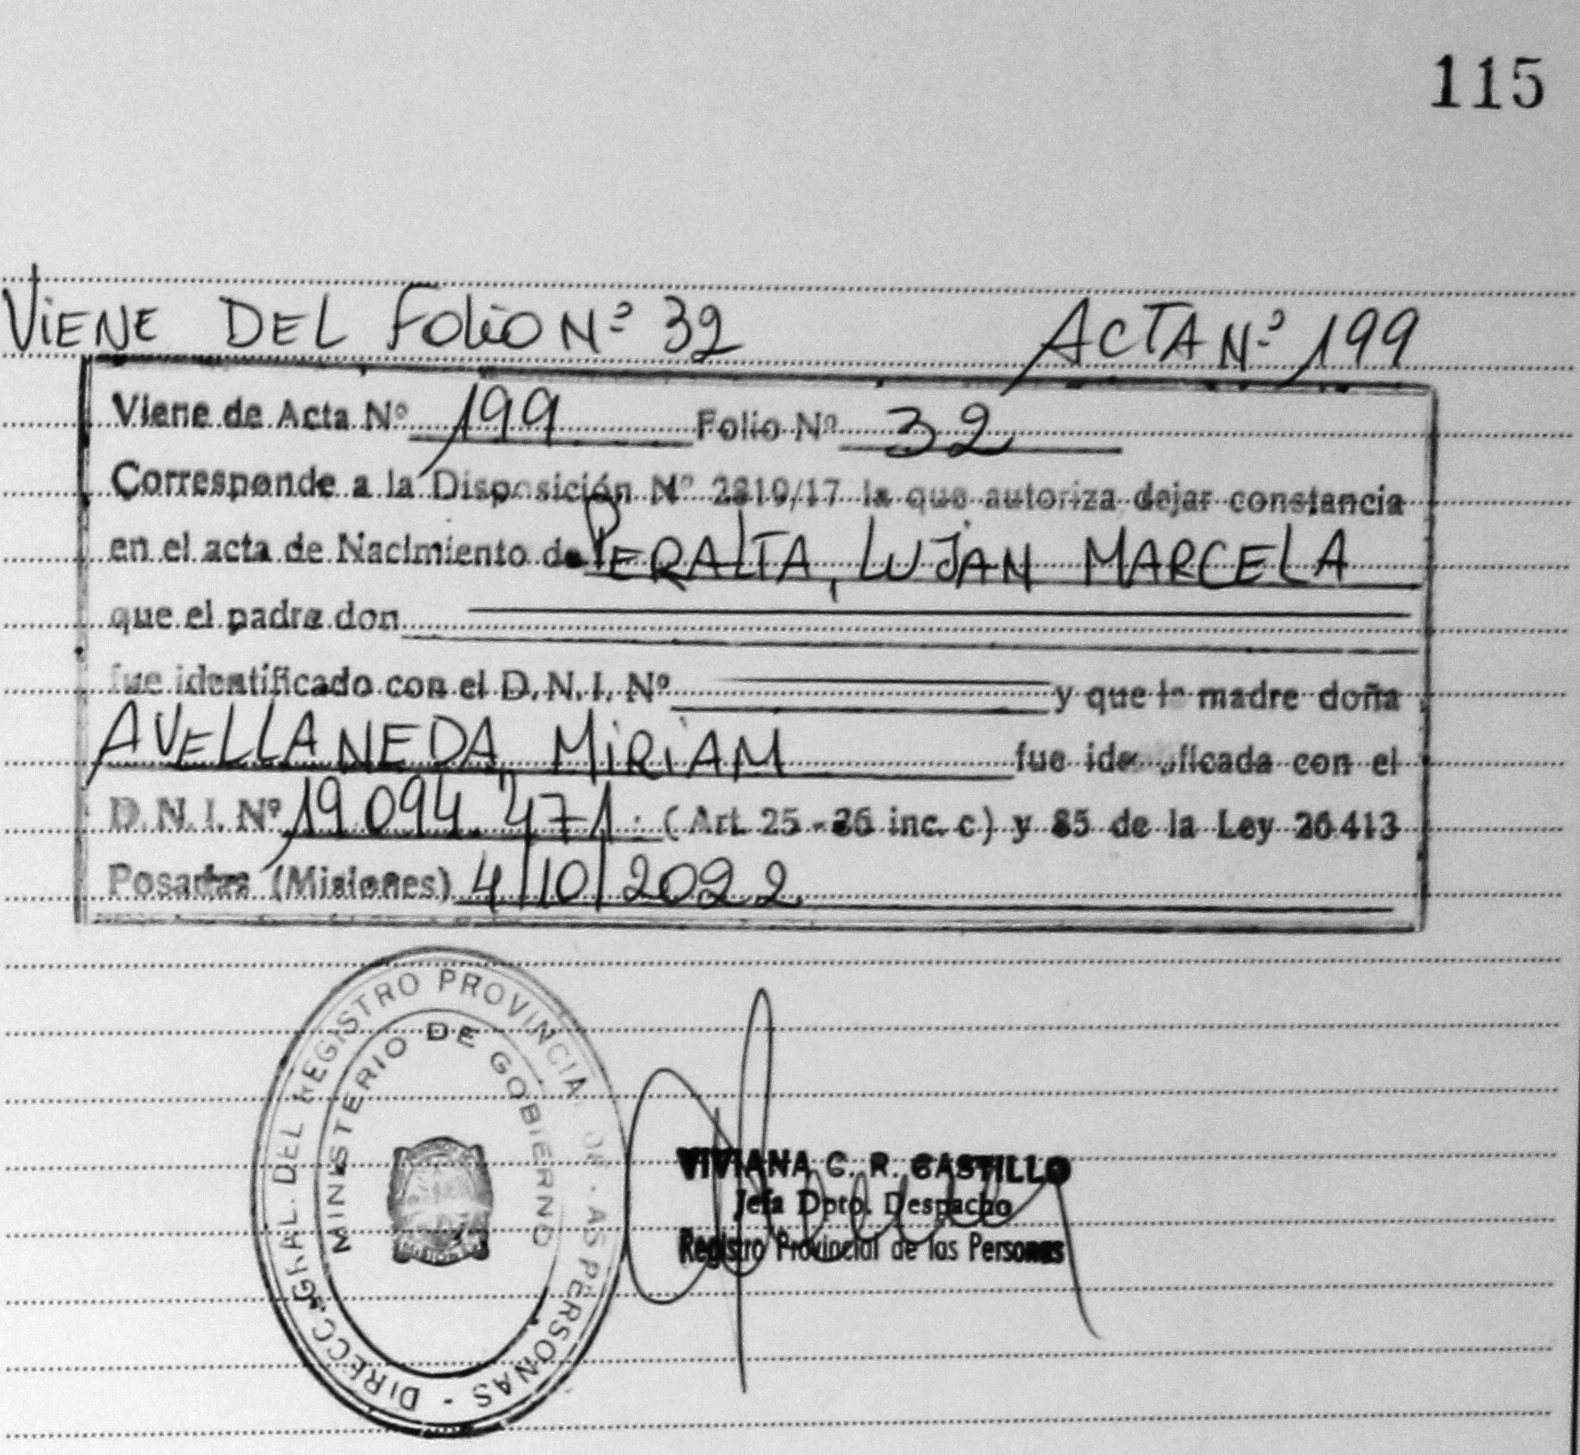 115
VIENE DEL FOLIO Nº 32 ACTA Nº 199
Viene de Acta Nº 199 Folio Nº 32
Corresponde a la Disposición Nº 2819/17 la que autoriza dejar constancia
en el acta de Nacimiento de PERALTA, LUJAN MARCELA
que el padre don
fue identificado con el D.N.I. Nº y que la madre doña
AVELLANEDA, MIRIAM fue identificada con el
D.N.I. Nº 19.094.471. (Art. 25 - 36 inc. c) y 85 de la Ley 26.413
Posadas (Misiones) 4/10/2022
DIRECC. GRAL. DEL REGISTRO PROVINCIAL DE LAS PERSONAS -
MINISTERIO DE GOBIERNO
VIVIANA C. R. CASTILLO
Jefa Dpto. Despacho
Registro Provincial de las Personas